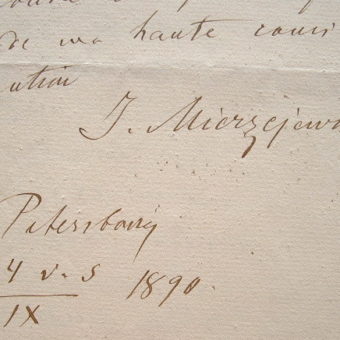 de ma haute consi
ution
J. Mierzejew
Petersbourg
4 v. s 1890.
IX